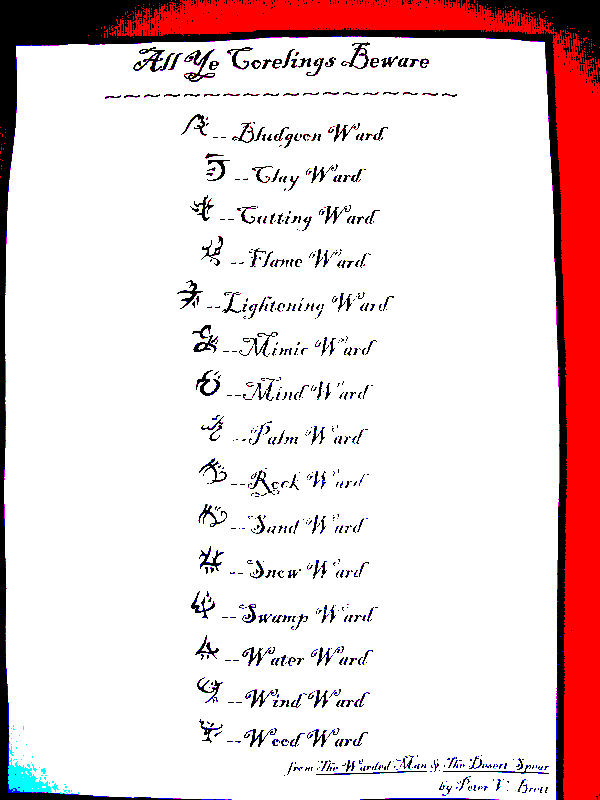 All Ye Corelings Beware
~~~~~~~~~~~~~~~~~~
--Bludgeon Ward
--Clay Ward
--Cutting Ward
--Flame Ward
--Lightening Ward
--Mimic Ward
--Mind Ward
--Palm Ward
--Rock Ward
--Sand Ward
--Snow Ward
--Swamp Ward
--Water Ward
--Wind Ward
--Wood Ward
from The Warded Man & The Desert Spear
by Peter V. Brett